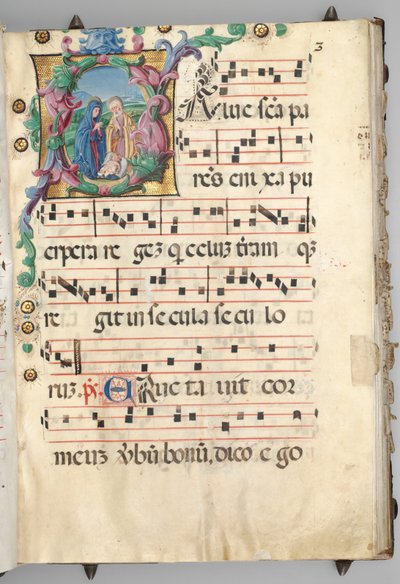 3
SAlue scā pa
rēs eni xa pu
erpera re gez q celuz trām qz
re git in se cula se cu lo
ruz. ps. Eruc ta uit cor
meuz vbū bonū, dico e go